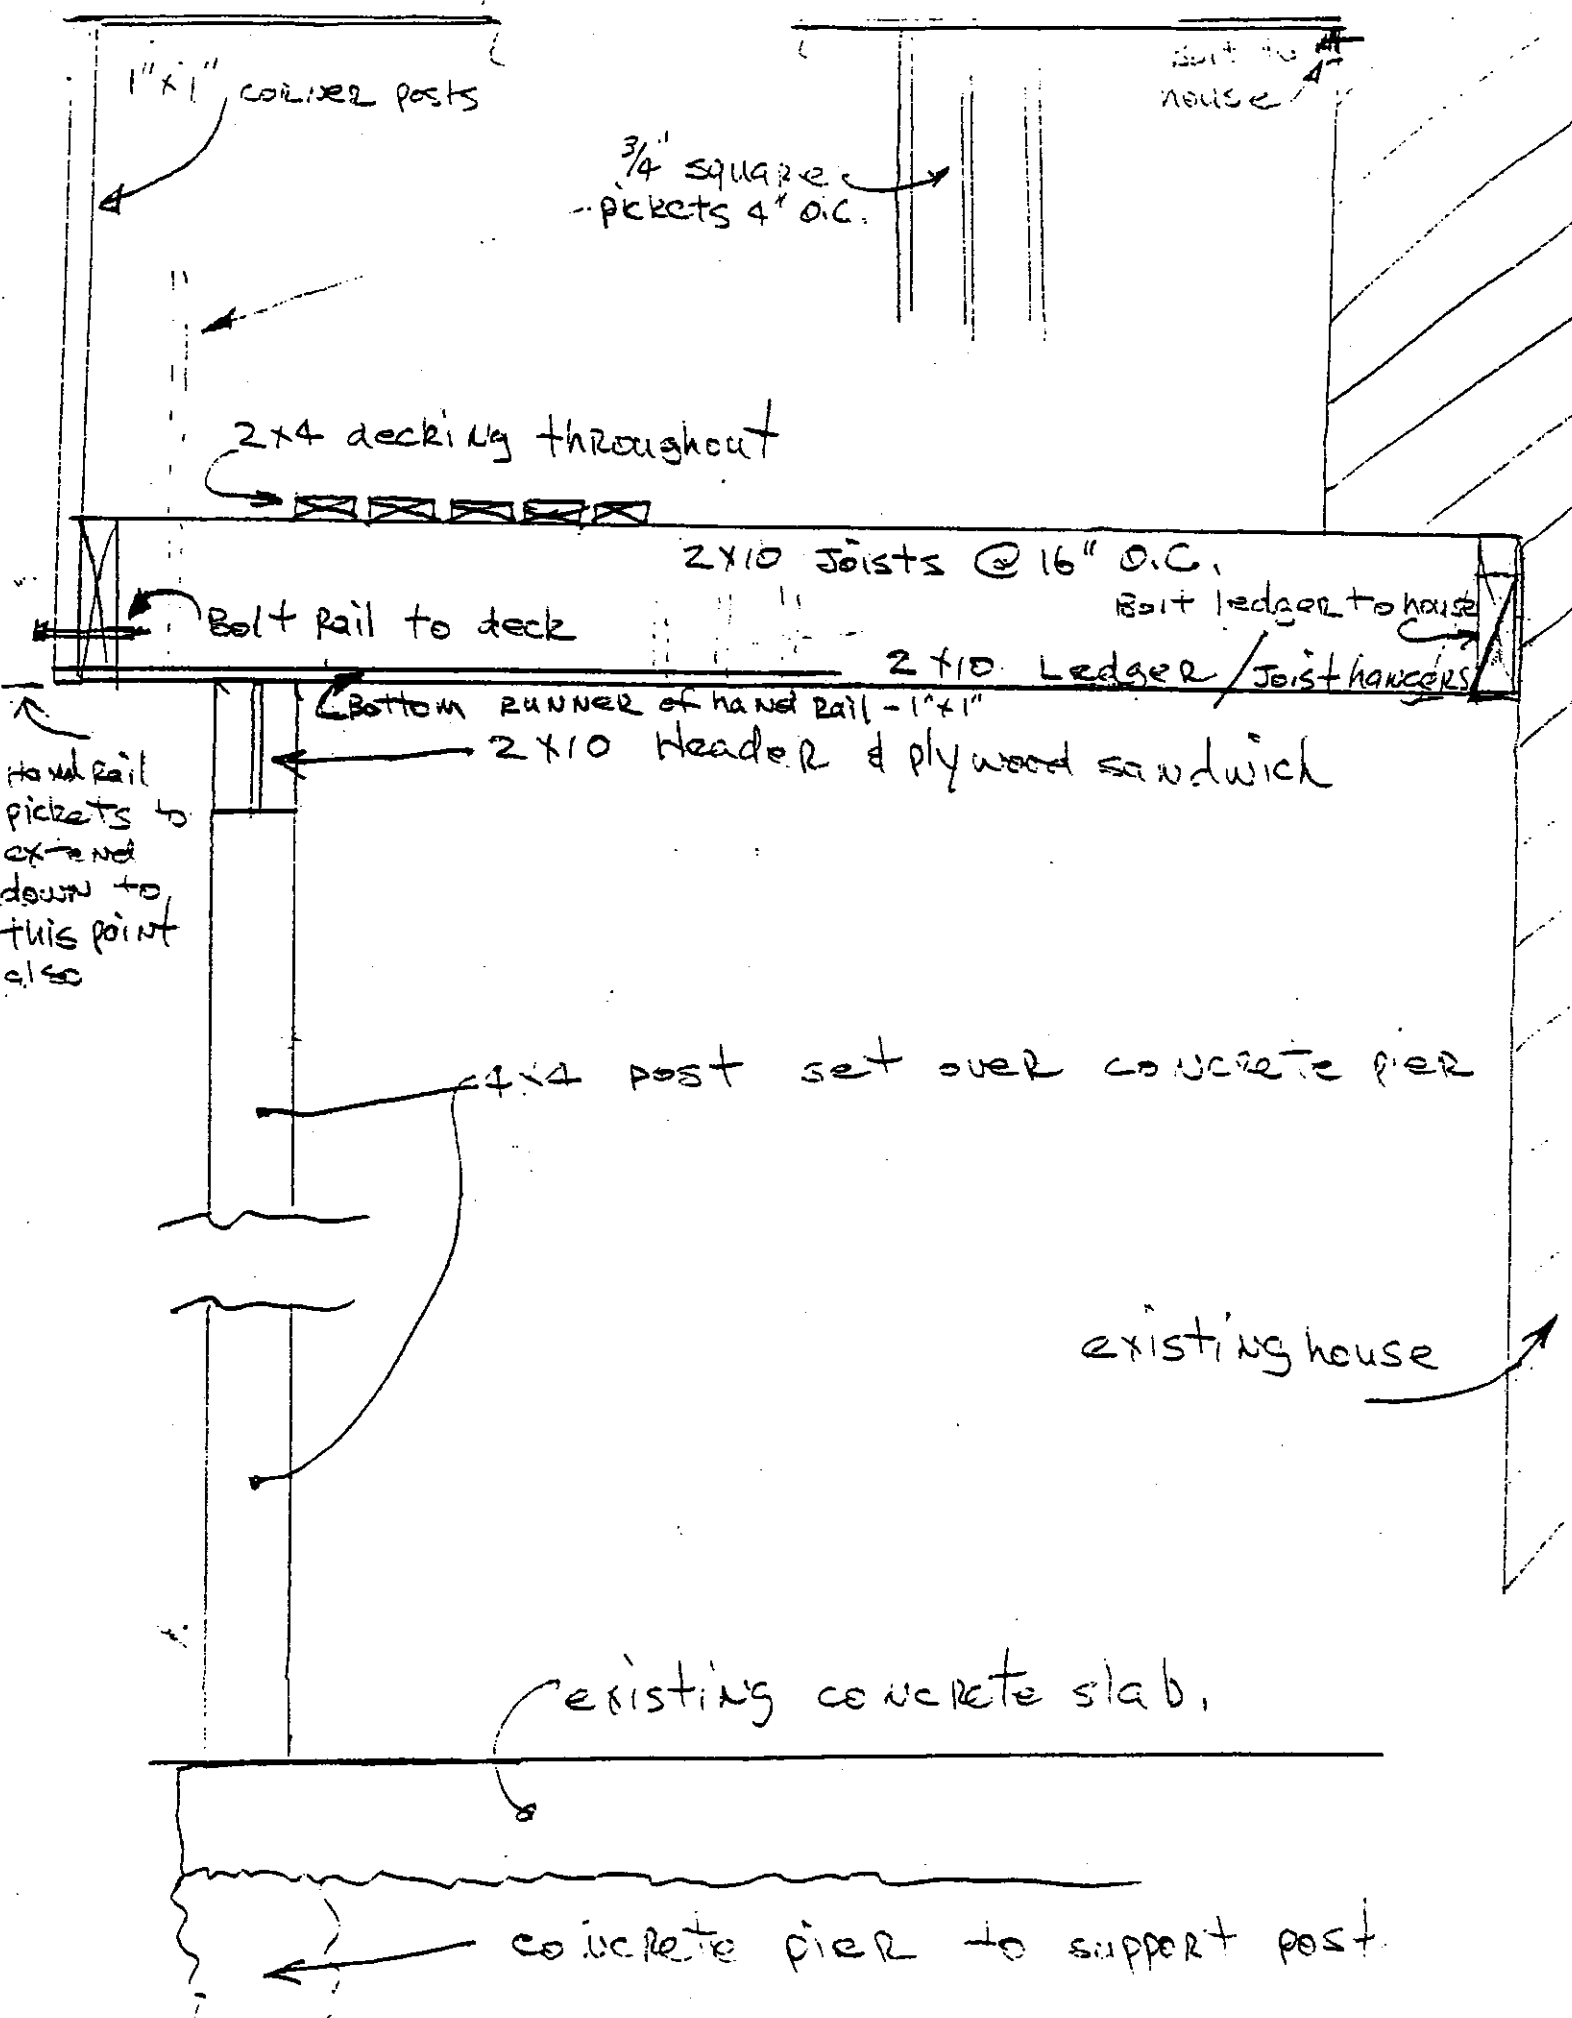 1"x1" corner posts
Bolt to
house
3/4" square
pickets 4" O.C.
2x4 decking throughout
2x10 Joists @ 16" O.C.
Bolt ledger to house
Bolt Rail to deck
2x10 Ledger / Joist hangers
Bottom runner of hand rail - 1"x1"
2x10 Header & plywood sandwich
Hand Rail
pickets to
extend
down to
this point
also
4x4 post set over concrete pier
existing house
existing concrete slab.
concrete pier to support post